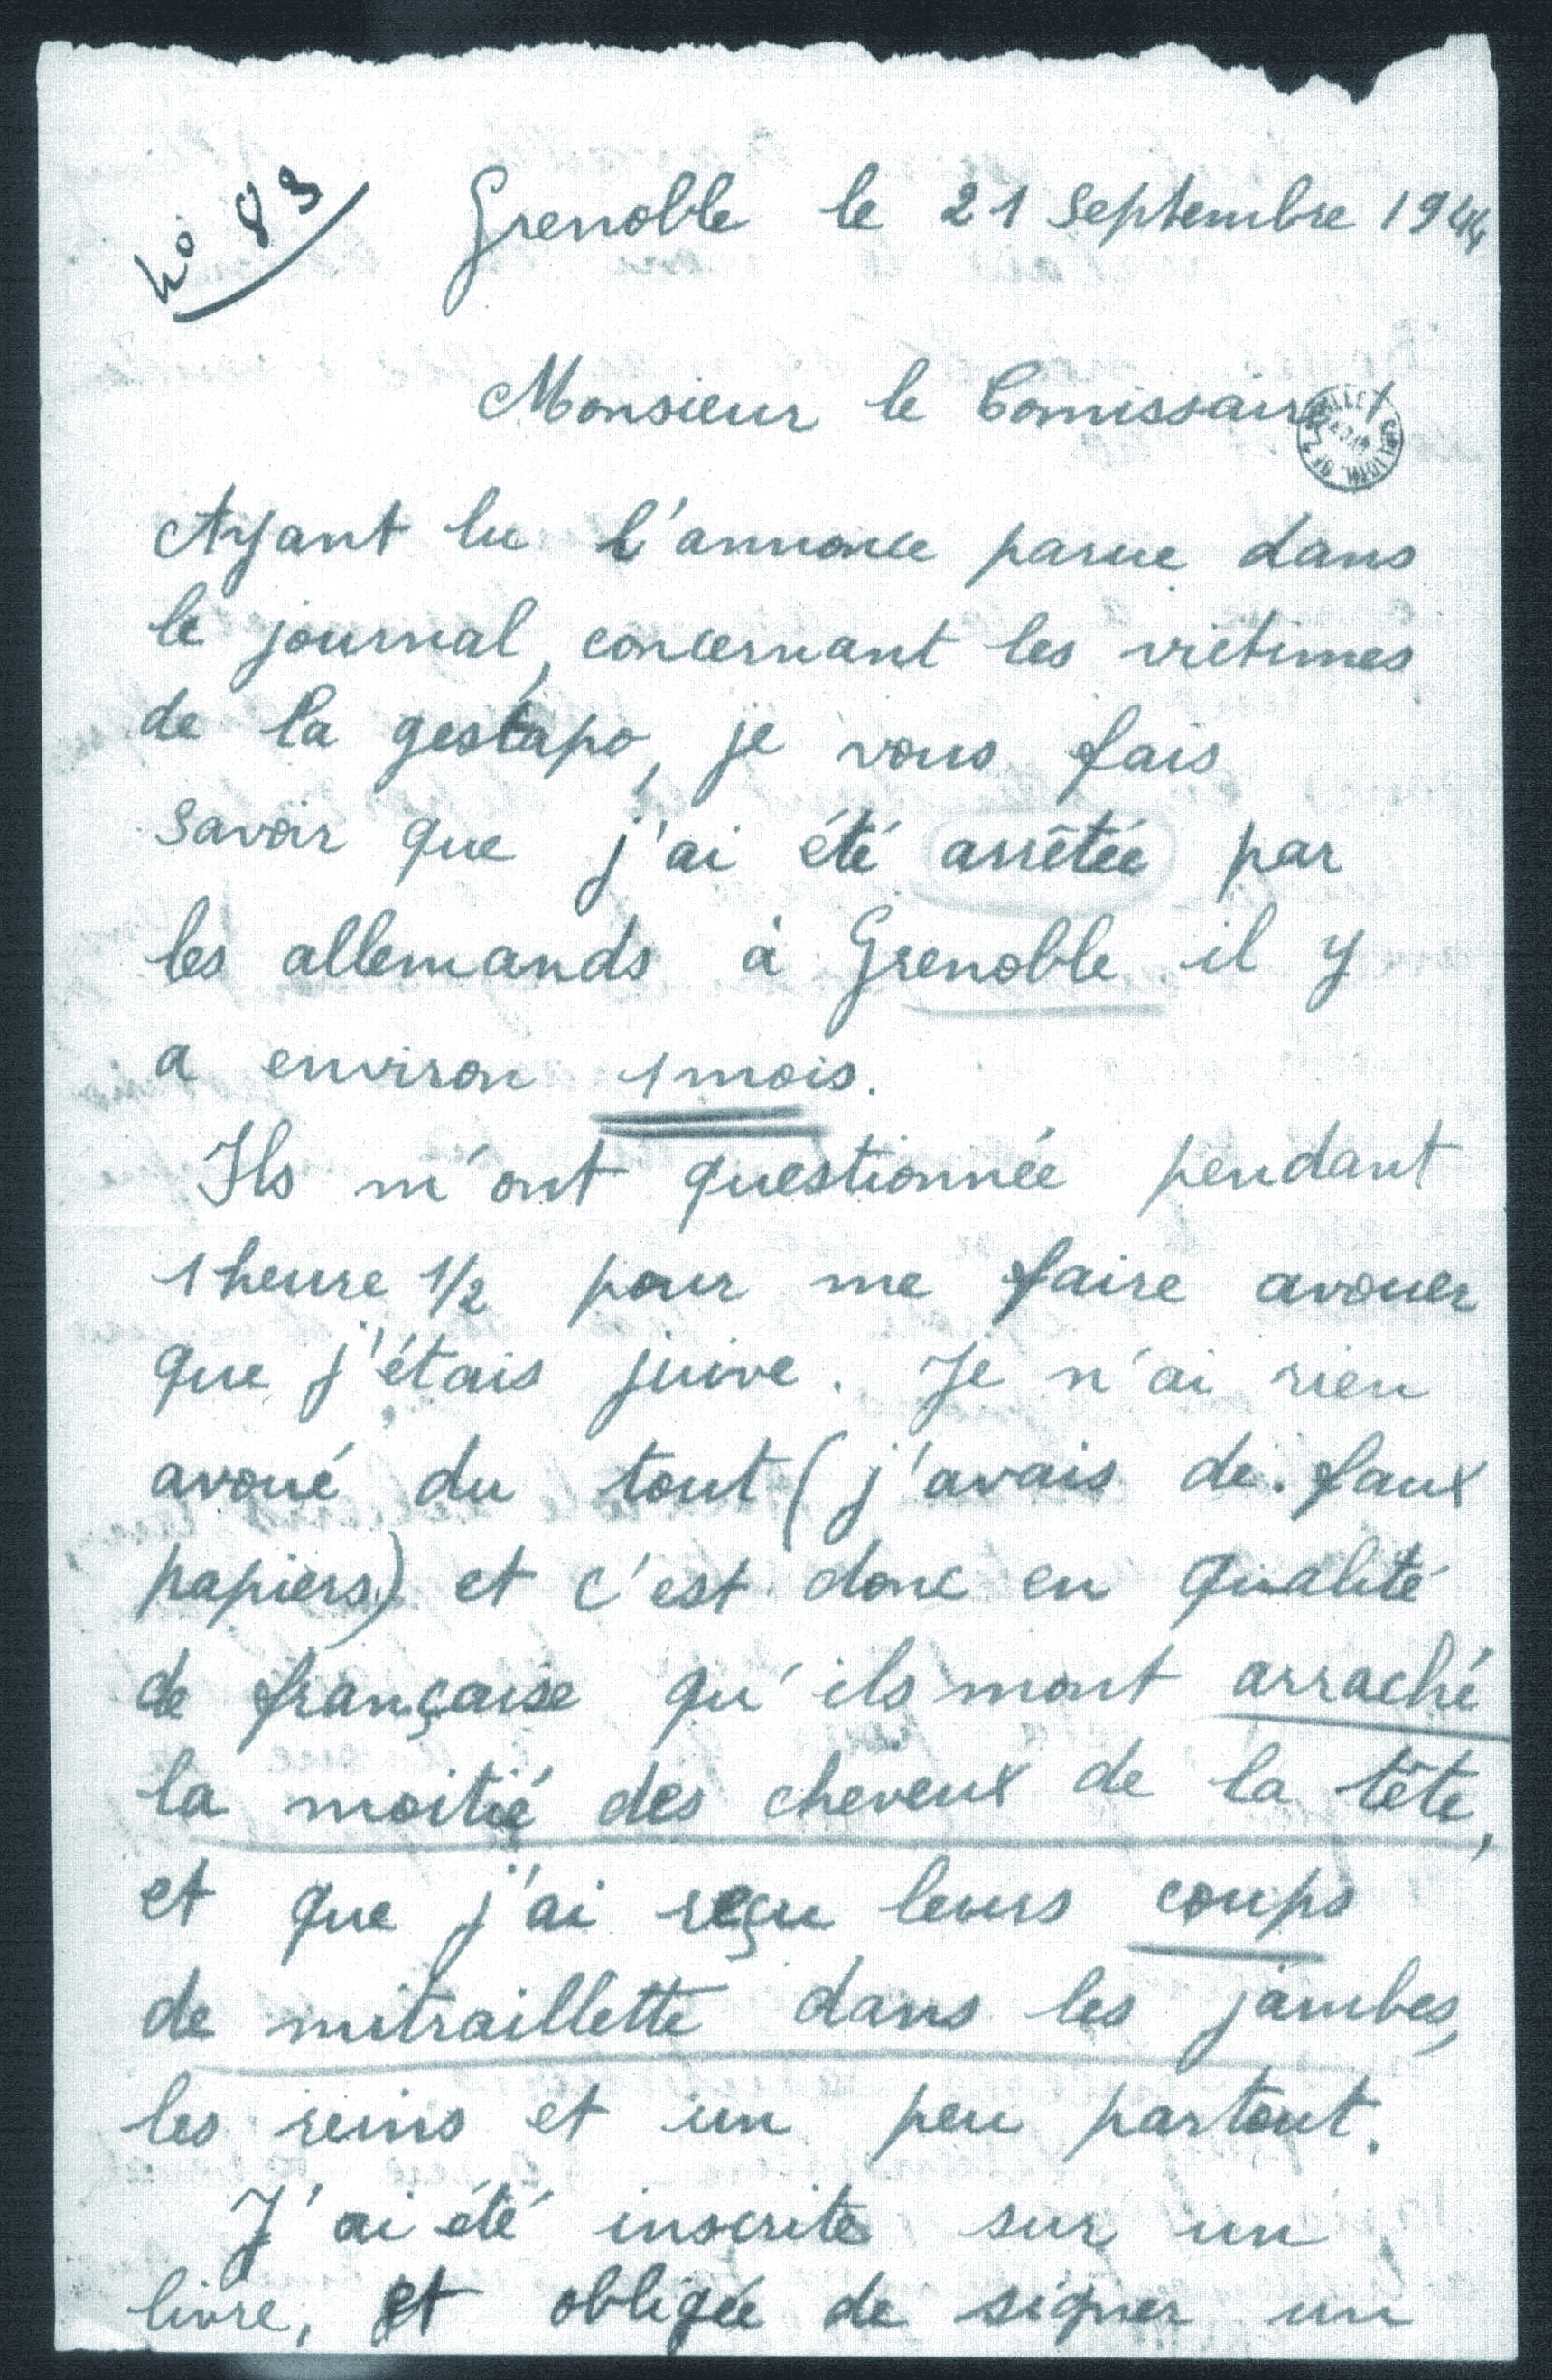 no 83
Grenoble le 21 septembre 1944
Monsieur le Comissaire
Ayant lu l'annonce parue dans
le journal, concernant les victimes
de la gestapo, je vous fais
savoir que j'ai été arrêtée par
les allemands à Grenoble il y
a environ 1 mois.
Ils m'ont questionnée pendant
1 heure 1/2 pour me faire avouer
que j'étais juive. Je n'ai rien
avoué du tout (j'avais de faux
papiers) et c'est donc en qualité
de française qu'ils mont arraché
la moitié des cheveux de la tête,
et que j'ai reçu leurs coups
de mitraillette dans les jambes,
les reins et un peu partout.
J'ai été inscrite sur un
livre, et obligée de signer un